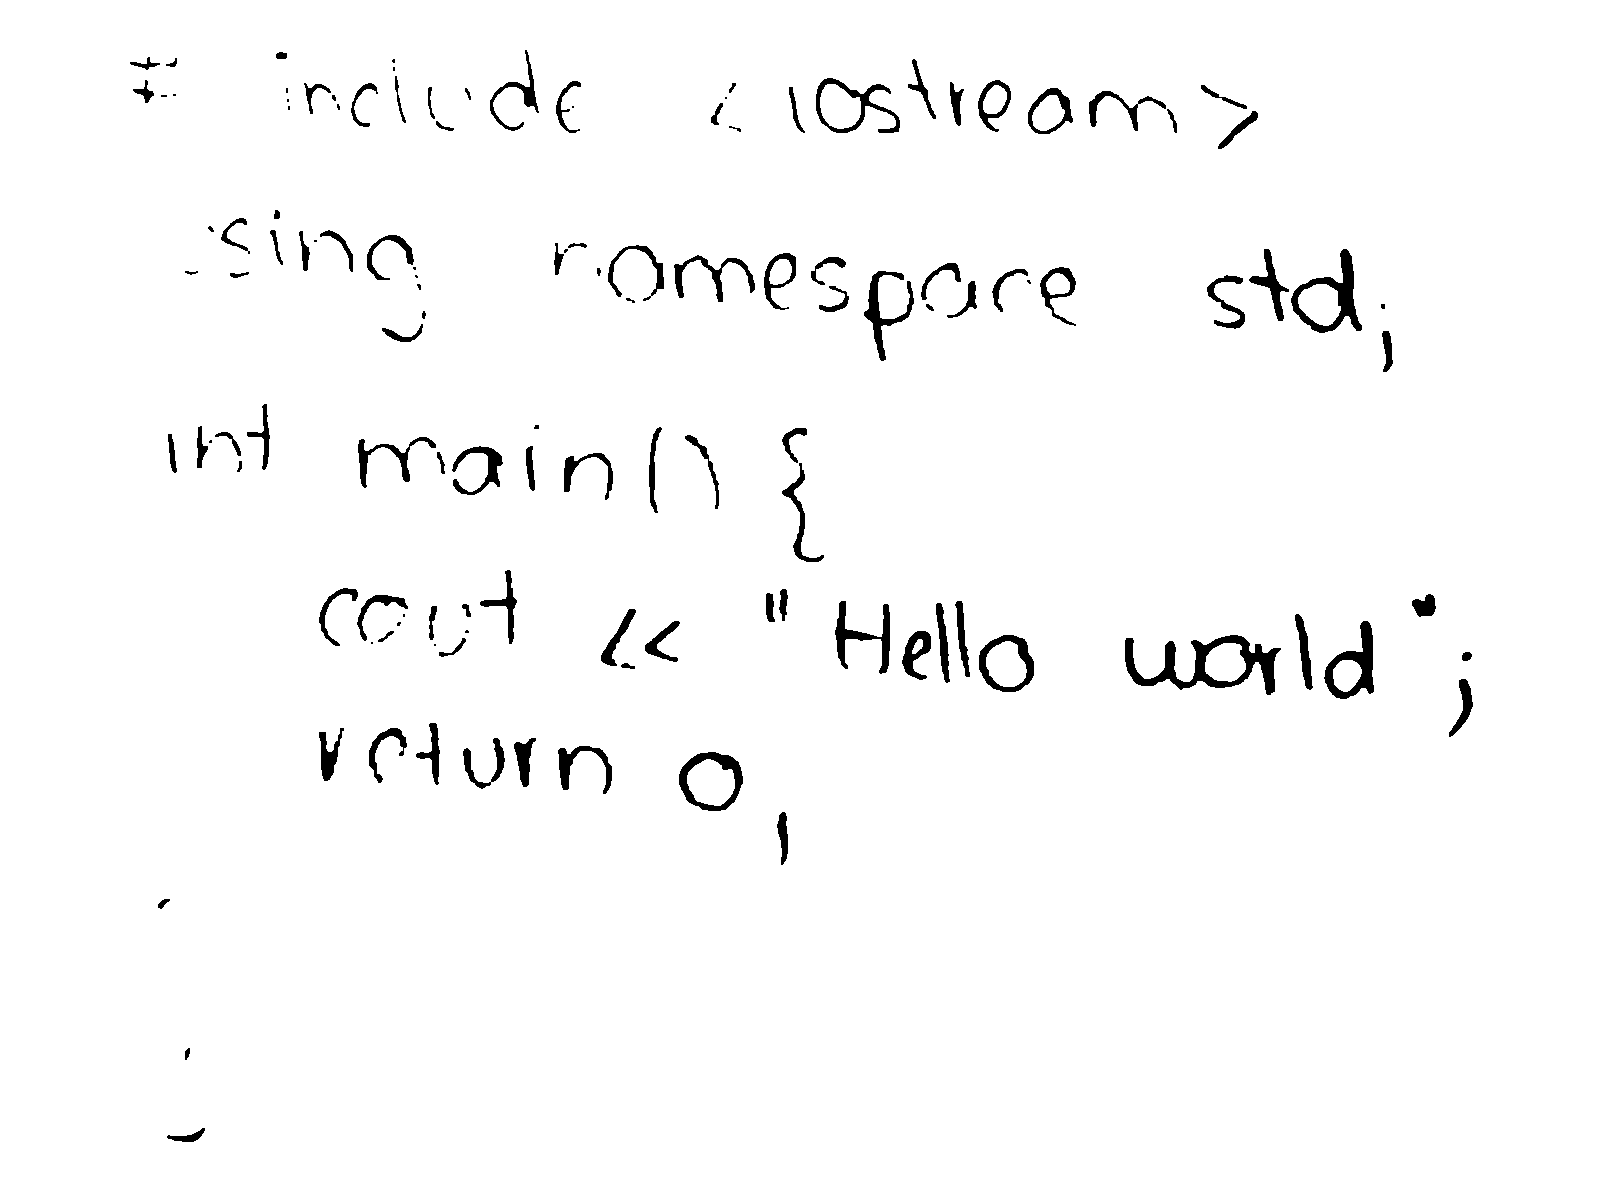 # include <iostream>
using namespace std;
int main() {
cout << "Hello world";
return 0;
}